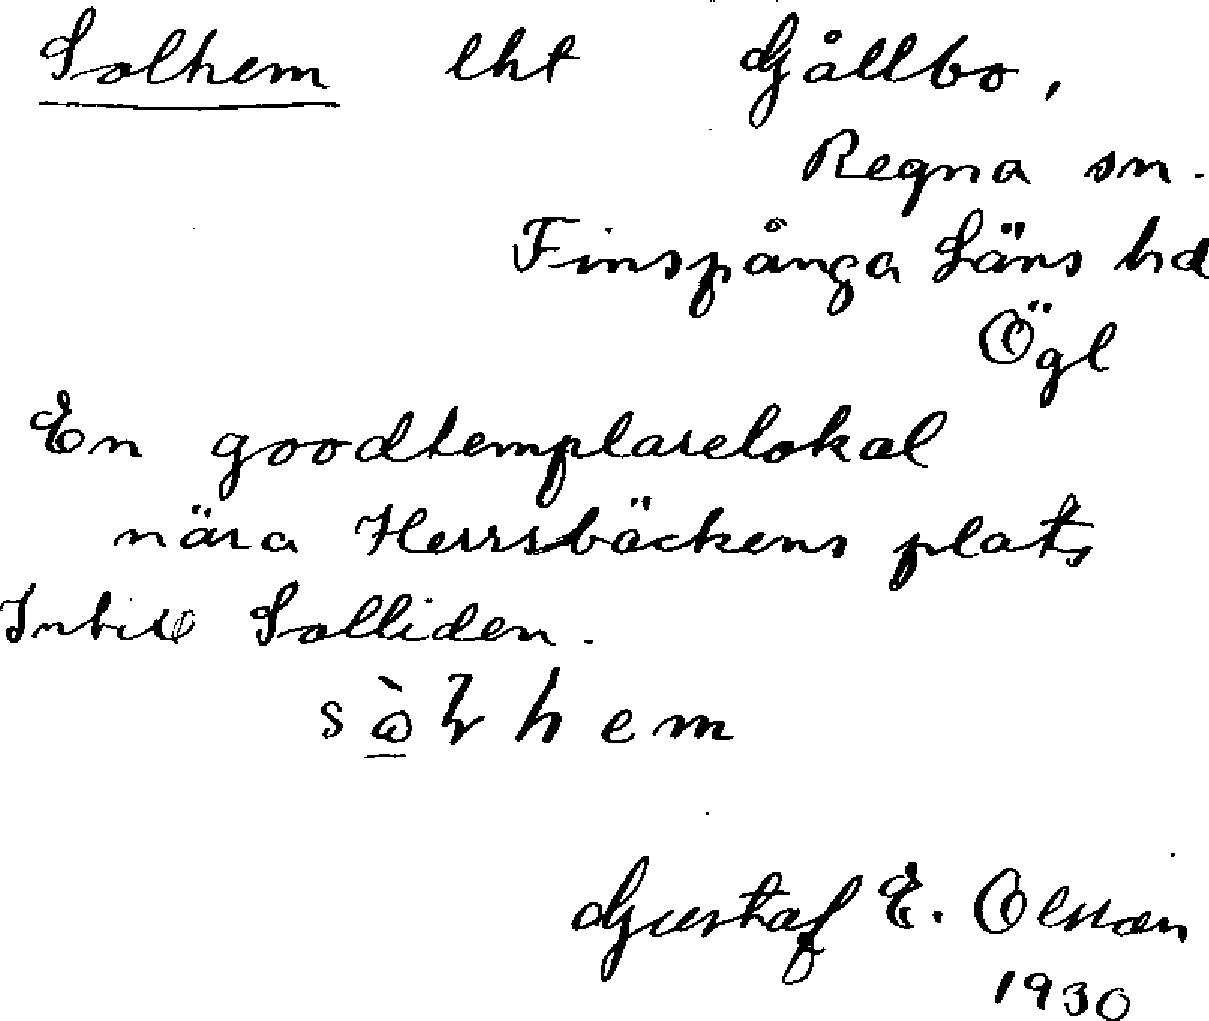 Solhem lht Gållbo,
Regna sn.
Finspånga Läns hd
Ögl
En goodtemplarelokal
nära Herrsbäckens plats
Intill Solliden.
hem
Gustaf E. Olsson
1930